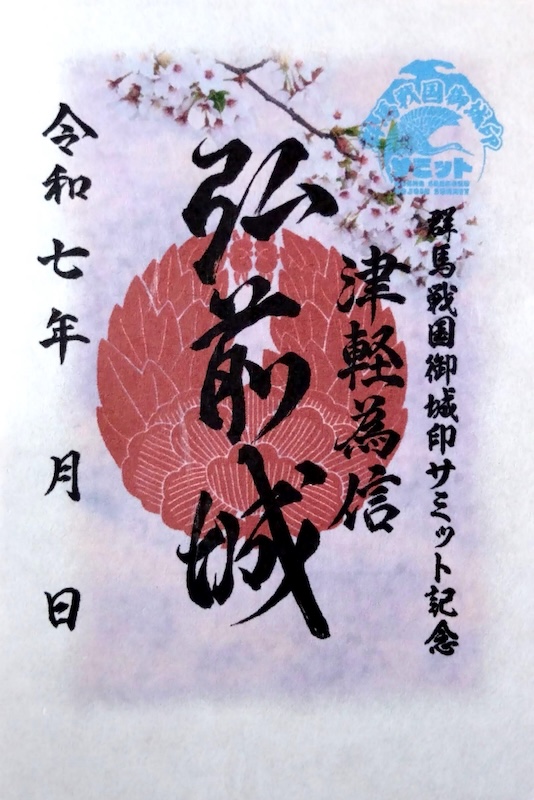 群馬戦国御城印サミット記念
津軽為信
弘前城
令和七年 月 日
サミット